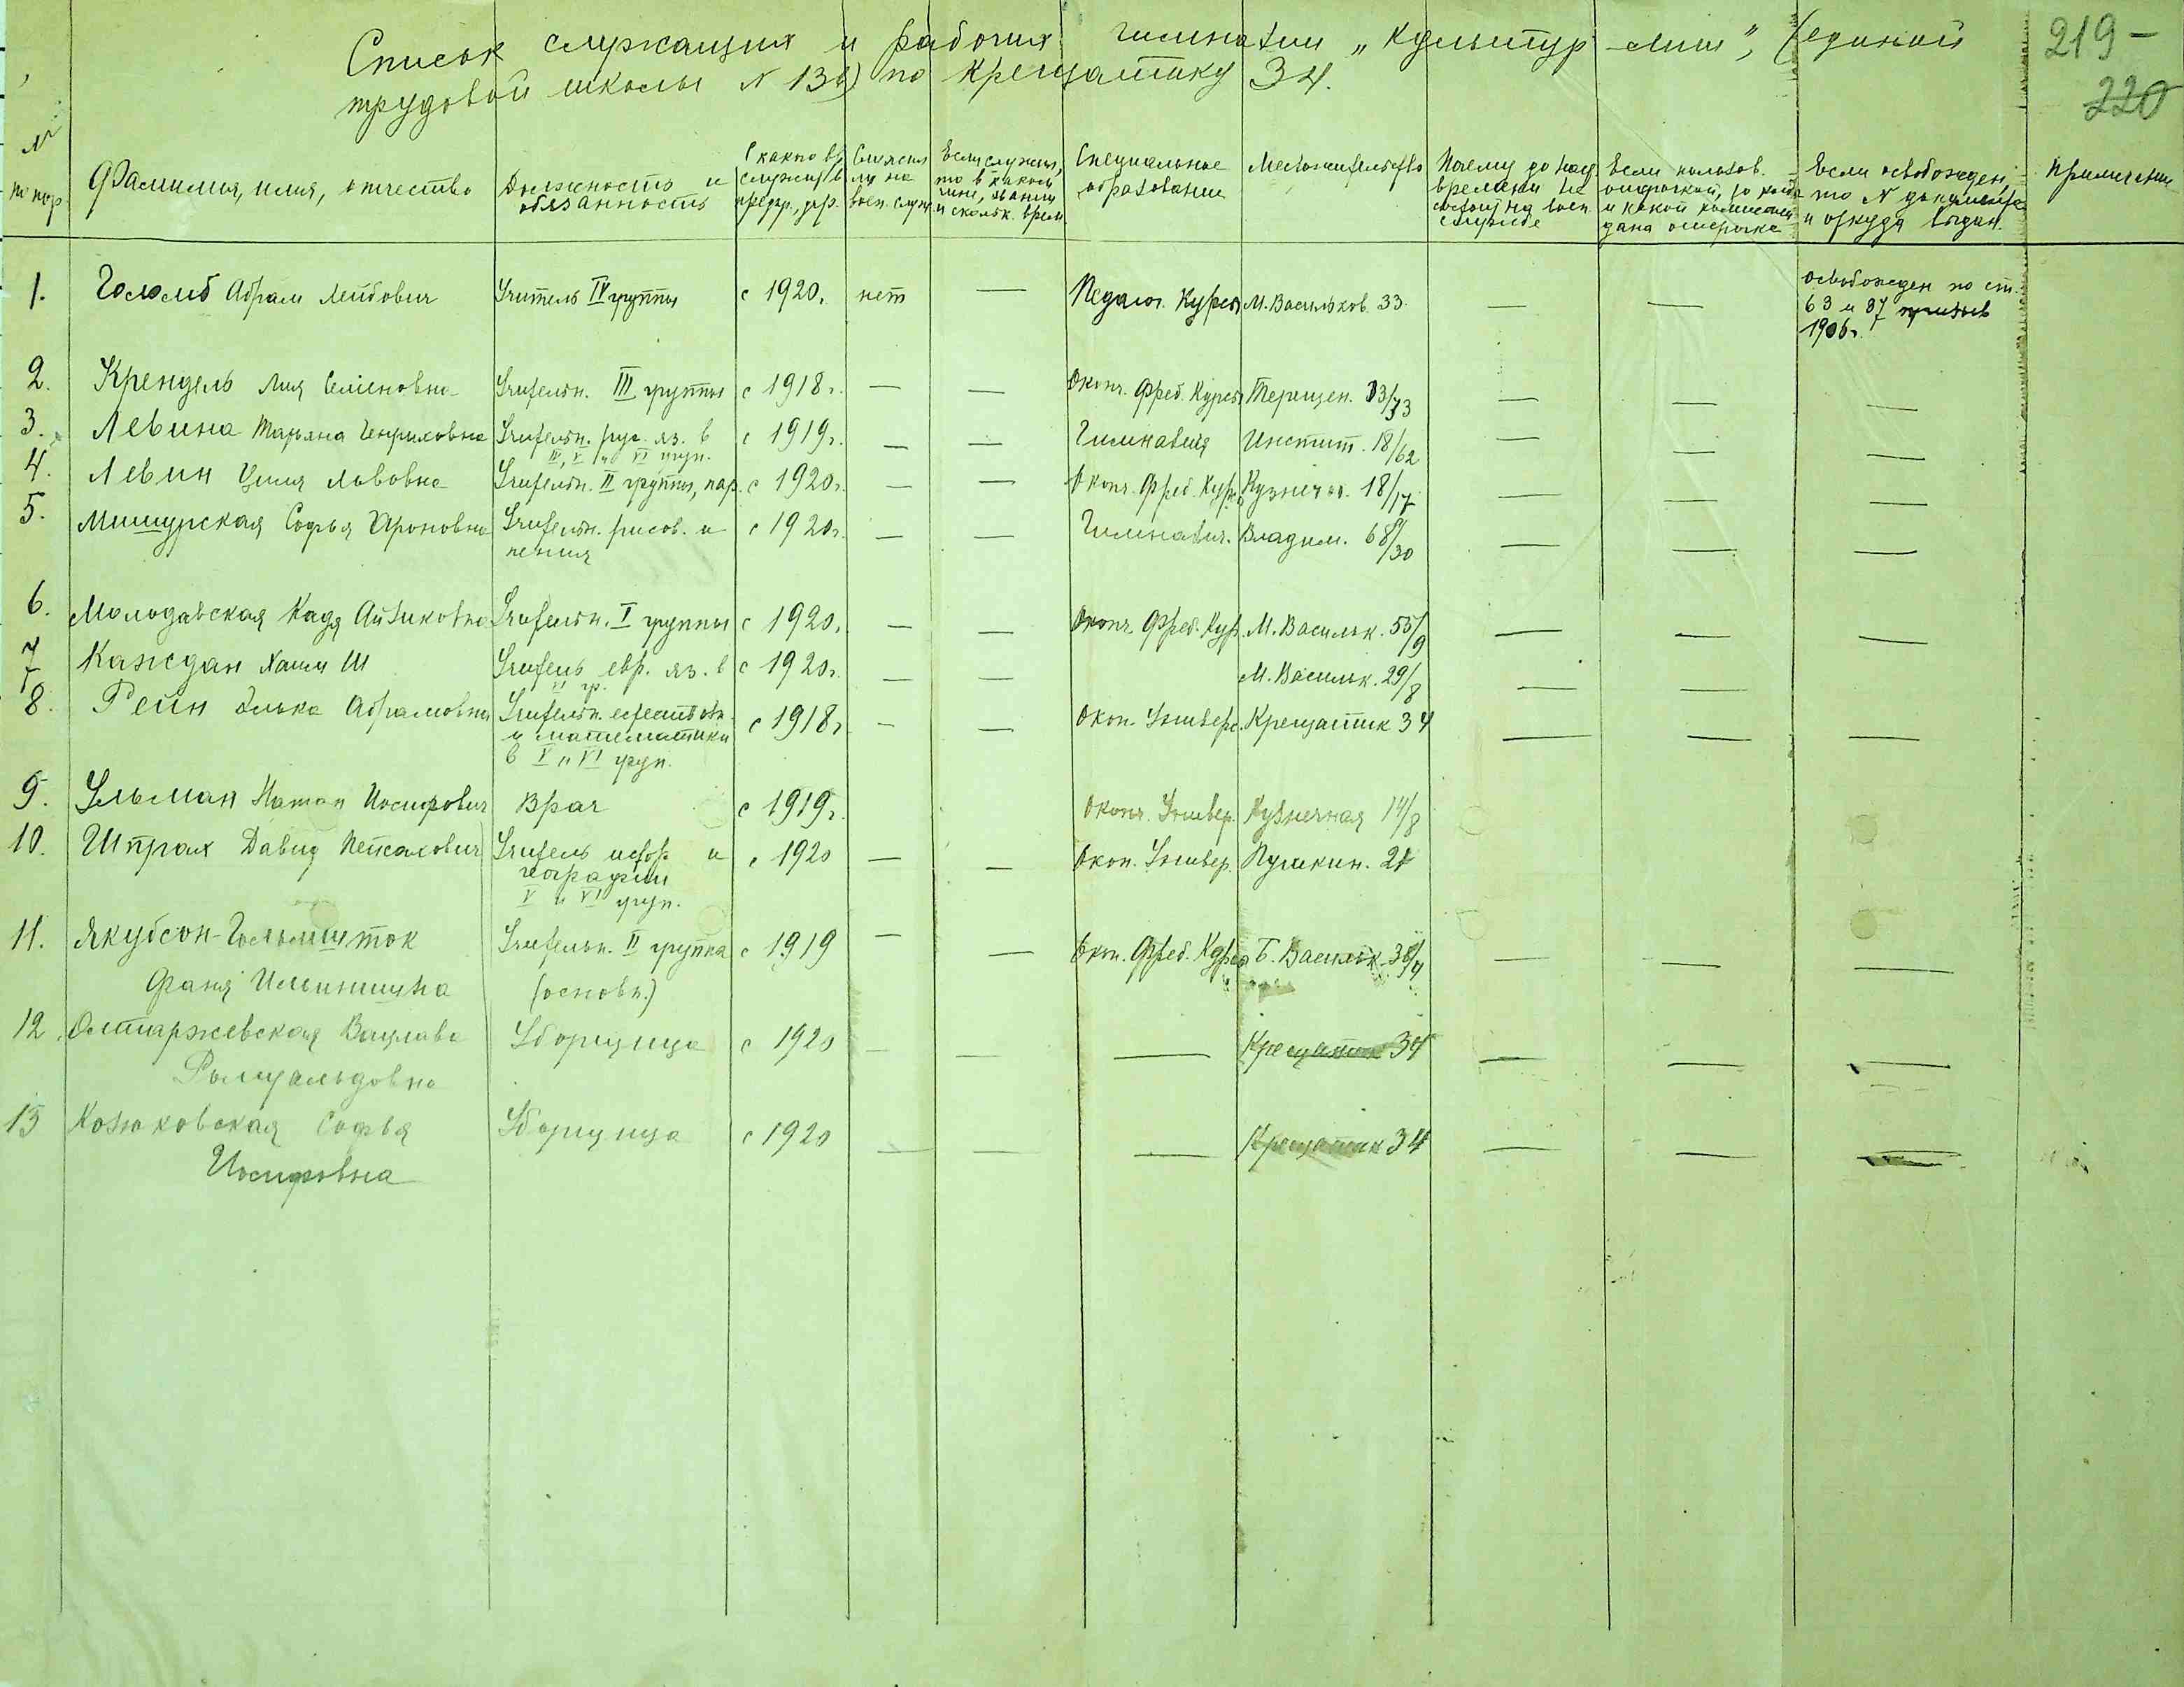 Список служащих и рабочих гимназии „Культур-Лиги", (единой
трудовой школы N 136) по Крещатику 34.
219 –
220
N по пор.
Фамилия, имя, отчество
Должность и обязанность
С какого вр. служит в предпр., учр.
Служил ли на воен. служ.
Если служил, то в каком чине, звании и скольк. врем.
Специальное образование
Местожительство
Почему до наст. времени не состоит на воен. службе
Если пользов. отсрочкой, то когда и какой комиссией дана отсрочка
Если освобожден, то N документа и откуда выдан.
Примечание
1. Голомб Абрам Лейбович Учитель IV группы с 1920г. нет — Педагог. Курсы М. Васильков. 33. — — освобожден по ст. 63 и 87 призыв 1906г.
2. Крендель Лия Семеновна Учительн. III группы с 1918г. — — Оконч. Фреб. Курсы Терещен. 13/33 — — —
3. Левина Марьяна Генриховна Учительн. рус. яз. в III, V и VI груп. с 1919г. — — Гимназия Инстит. 18/62 — — —
4. Левин Циля Львовна Учительн. II группы, пар. с 1920г. — — Оконч. Фреб. Курс. Кузнечн. 18/17 — — —
5. Мишурская Софья Ароновна Учительн. рисов. и пения с 1920г. — — Гимназич. Владим. 68/30 — — —
6. Молодавская Кадя Айзиковна Учительн. I группы с 1920г. — — Оконч. Фреб. Кур. М. Васильк. 55/9 — — —
7. Каждан Хаим Ш Учитель евр. яз. в VI гр. с 1920г. — — М. Васильк. 29/8 — —
8. Рейн Элька Абрамовна Учительн. естествозн. и математики в V и VI груп. с 1918г. — — Окон. Универс. Крещатик 34 — — —
9. Ульман Натан Иосифович Врач с 1919г. Оконч. Универ. Кузнечная 14/8
10. Штрах Давид Пейсахович Учитель истор. и географии V и VI груп. с 1920 — — Окон. Универ. Пушкин. 21
11. Якубсон-Гольмшток Фаня Ильинишна Учительн. II группа (основн.) с 1919 — — Окон. Фреб. Курсы Б. Васильк. 36/4 — — —
12. Остаржевская Вацлава Ромуальдовна Уборщица с 1920 — — — Крещатик 34 — — —
13 Козюковская Софья Иосифовна Уборщица с 1920 — — — Крещатик 34 — — —